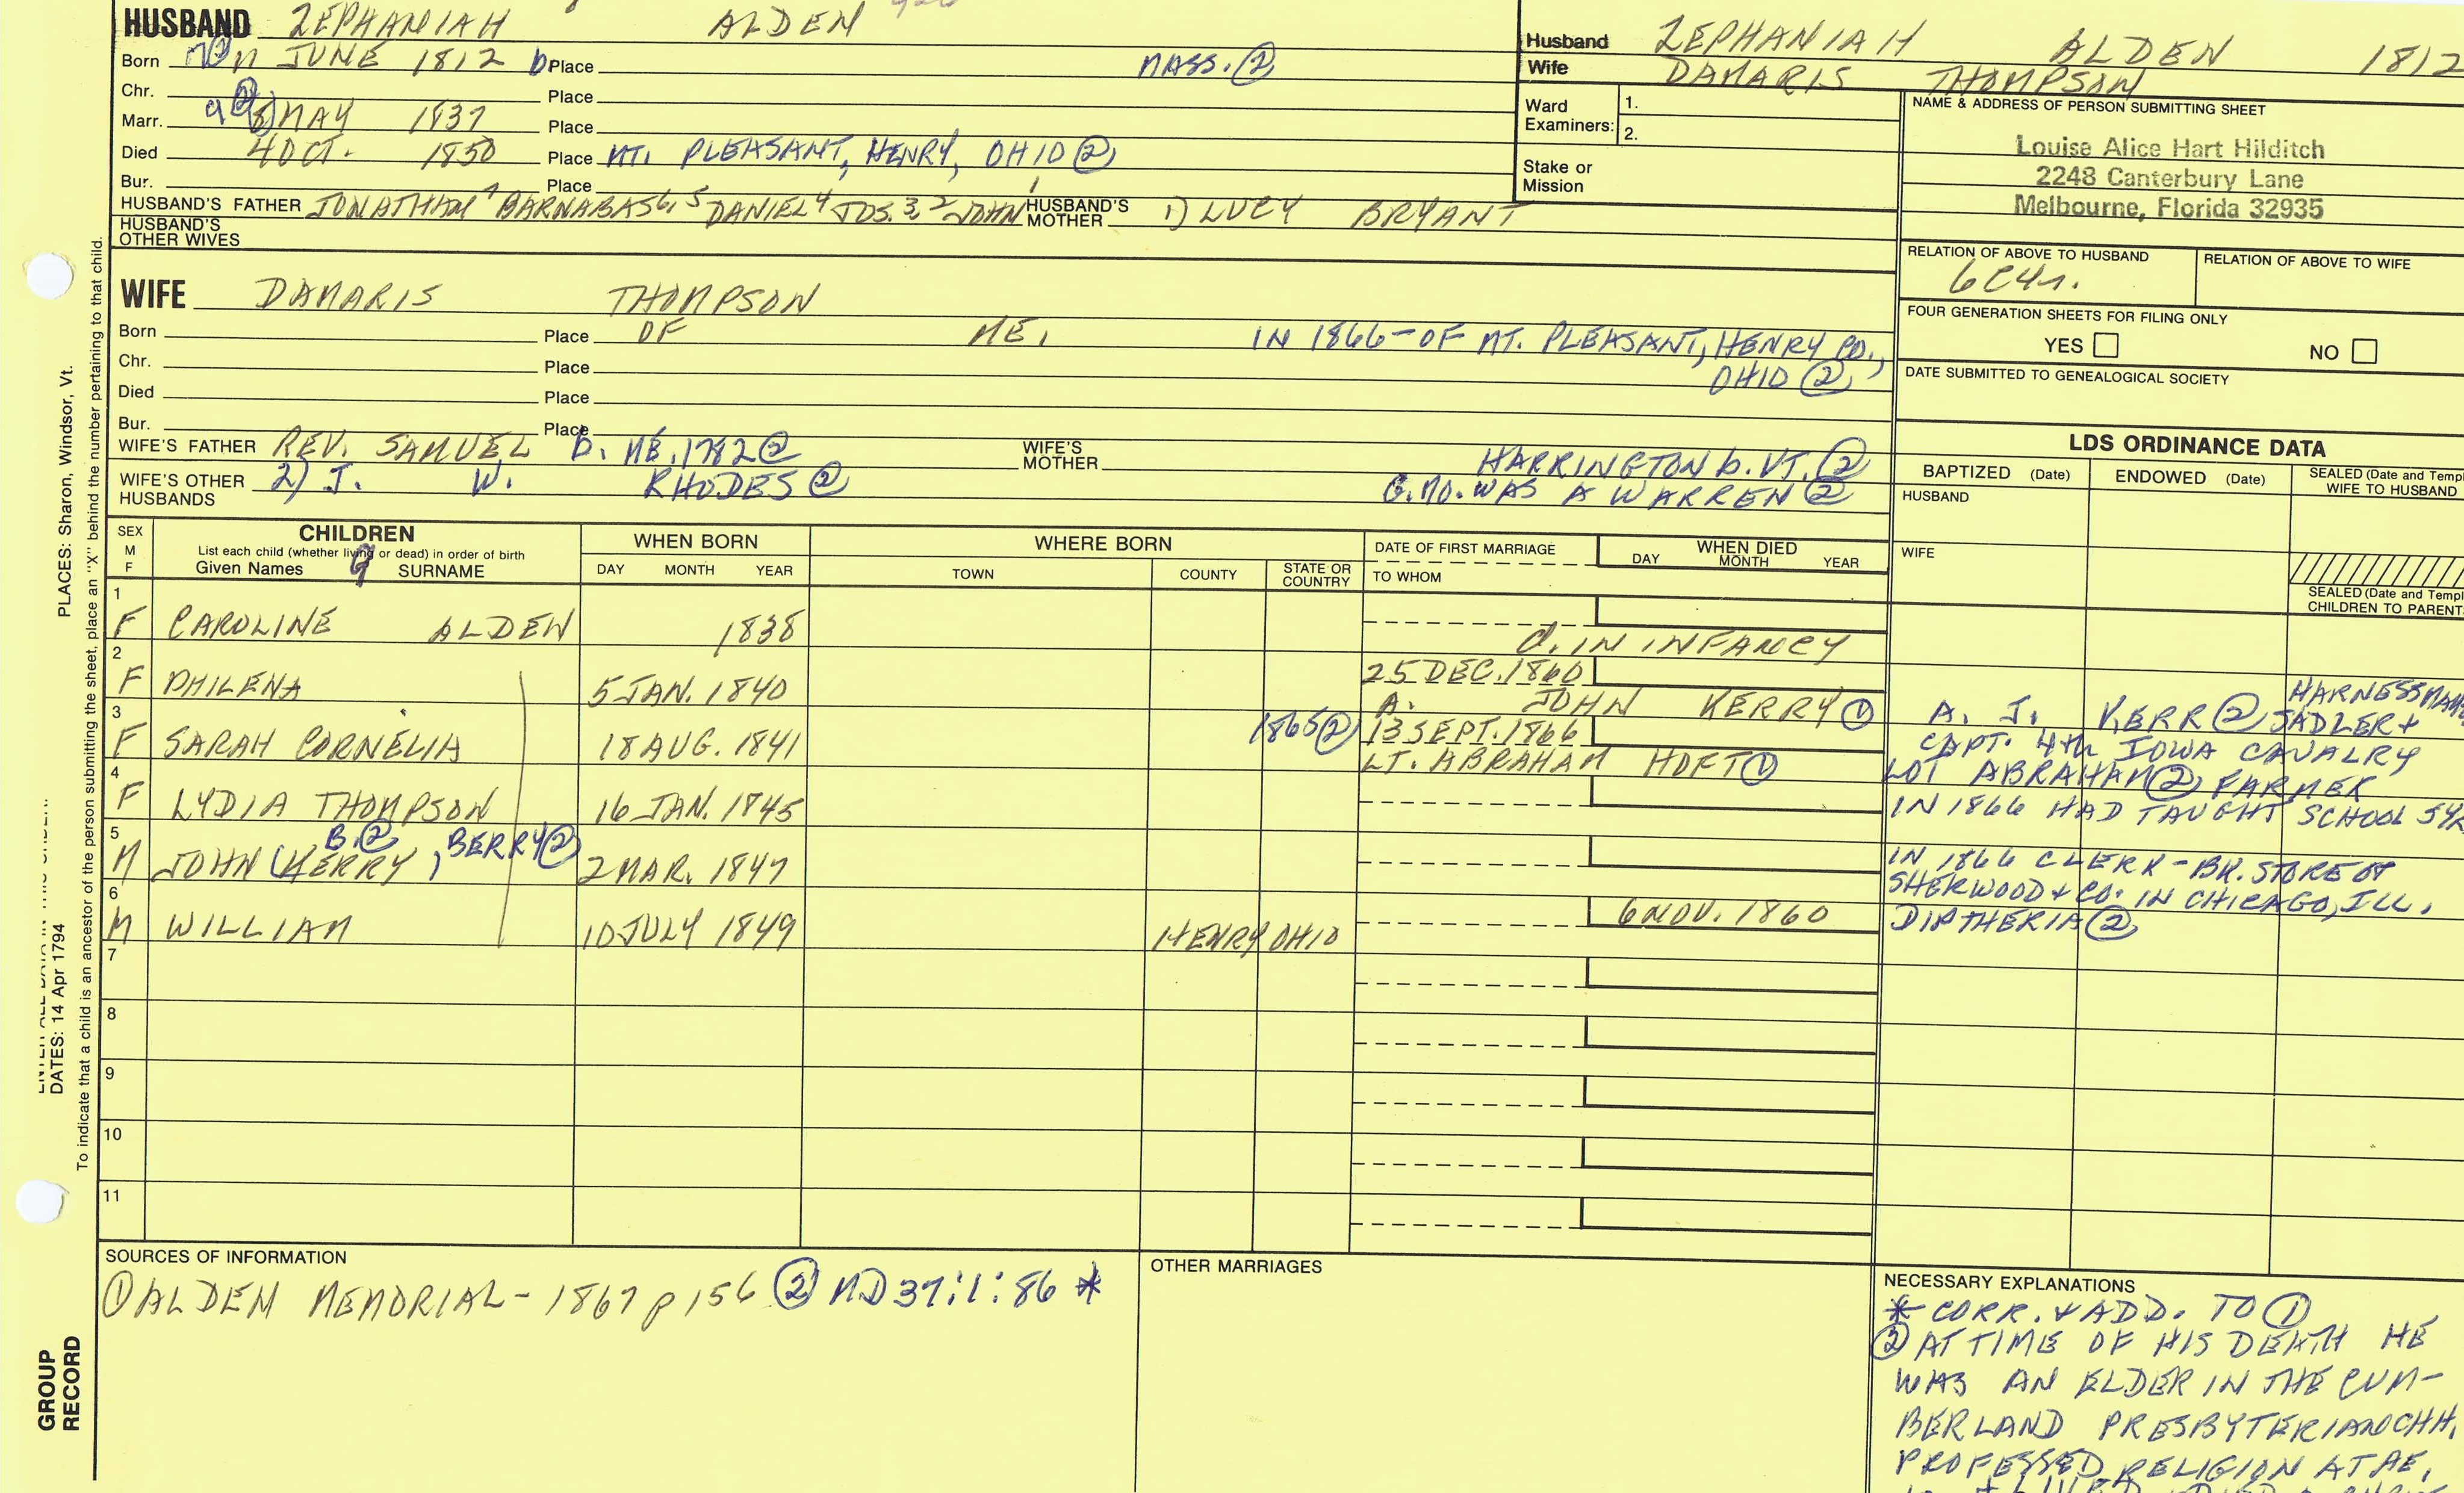 HUSBAND ZEPHANIAH ALDEN
Born JUNE 1812 Place MASS. ②
Chr. Place
Marr. 9 ② 8 MAY 1837 Place
Died 4 OCT. 1850 Place MT. PLEASANT, HENRY, OHIO ②
Bur. Place
HUSBAND'S FATHER JONATHAN 7 BARNABAS 6, 5 DANIEL 4 JOS. 3, 2 JOHN 1 HUSBAND'S MOTHER 1) LUCY BRYANT
HUSBAND'S OTHER WIVES
Husband ZEPHANIAH ALDEN 1812
Wife DAMARIS THOMPSON
Ward Examiners: 1.
2.
Stake or Mission
NAME & ADDRESS OF PERSON SUBMITTING SHEET
Louise Alice Hart Hilditch
2248 Canterbury Lane
Melbourne, Florida 32935
RELATION OF ABOVE TO HUSBAND RELATION OF ABOVE TO WIFE
6C4r.
FOUR GENERATION SHEETS FOR FILING ONLY
YES NO
DATE SUBMITTED TO GENEALOGICAL SOCIETY
WIFE DAMARIS THOMPSON
Born Place OF ME. IN 1866-OF MT. PLEASANT, HENRY CO.,
OHIO ②
Chr. Place
Died Place
Bur. Place
WIFE'S FATHER REV. SAMUEL b. ME. 1782 ② WIFE'S MOTHER HARRINGTON b. VT. ②
WIFE'S OTHER HUSBANDS 2) J. W. RHODES ② G.MO. WAS A WARREN ②
LDS ORDINANCE DATA
BAPTIZED (Date) ENDOWED (Date) SEALED (Date and Templ
WIFE TO HUSBAND
HUSBAND
WIFE
SEALED (Date and Templ
CHILDREN TO PARENT
SEX M F CHILDREN WHEN BORN WHERE BORN DATE OF FIRST MARRIAGE WHEN DIED
List each child (whether living or dead) in order of birth
Given Names SURNAME DAY MONTH YEAR TOWN COUNTY STATE OR COUNTRY TO WHOM DAY MONTH YEAR
1 F CAROLINE ALDEN 1838 d. IN INFANCY
2 F PHILENA 5 JAN. 1840 25 DEC. 1860
A. JOHN KERRY ① A. J. KERR ② HARNESSMAKE
SADLER +
CAPT. 4th IOWA CAVALRY
3 F SARAH CORNELIA 18 AUG. 1841 1865 ② 13 SEPT. 1866
LT. ABRAHAM HOFT ① LOT ABRAHAM ② FARMER
4 F LYDIA THOMPSON 16 JAN. 1845 IN 1866 HAD TAUGHT SCHOOL 5 YR
5 M JOHN (KERRY, B. ② BERRY ② 2 MAR. 1847 IN 1866 CLERK - BK. STORE OF
SHERWOOD + CO. IN CHICAGO, ILL.
6 M WILLIAM 10 JULY 1849 HENRY OHIO 6 NOV. 1860 DIPTHERIA ②
7
8
9
10
11
SOURCES OF INFORMATION
① ALDEN MEMORIAL - 1867 p 156 ② MD 37:1:86 *
OTHER MARRIAGES
NECESSARY EXPLANATIONS
* CORR. + ADD. TO ①
② AT TIME OF HIS DEATH HE
WAS AN ELDER IN THE CUM-
BERLAND PRESBYTERIAN CHH.
PROFESSED RELIGION AT AE.
PLACES: Sharon, Windsor, Vt.
DATES: 14 Apr 1794
To indicate that a child is an ancestor of the person submitting the sheet, place an "X" behind the number pertaining to that child.
GROUP
RECORD